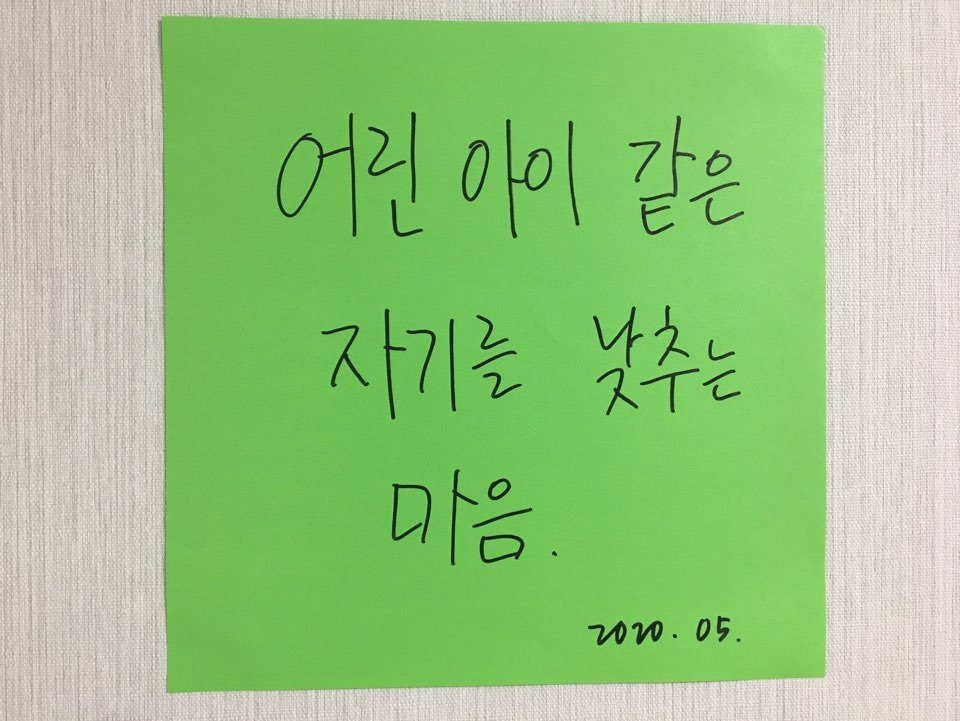 어린 아이 같은
자기를 낮추는
마음.
2020. 05.